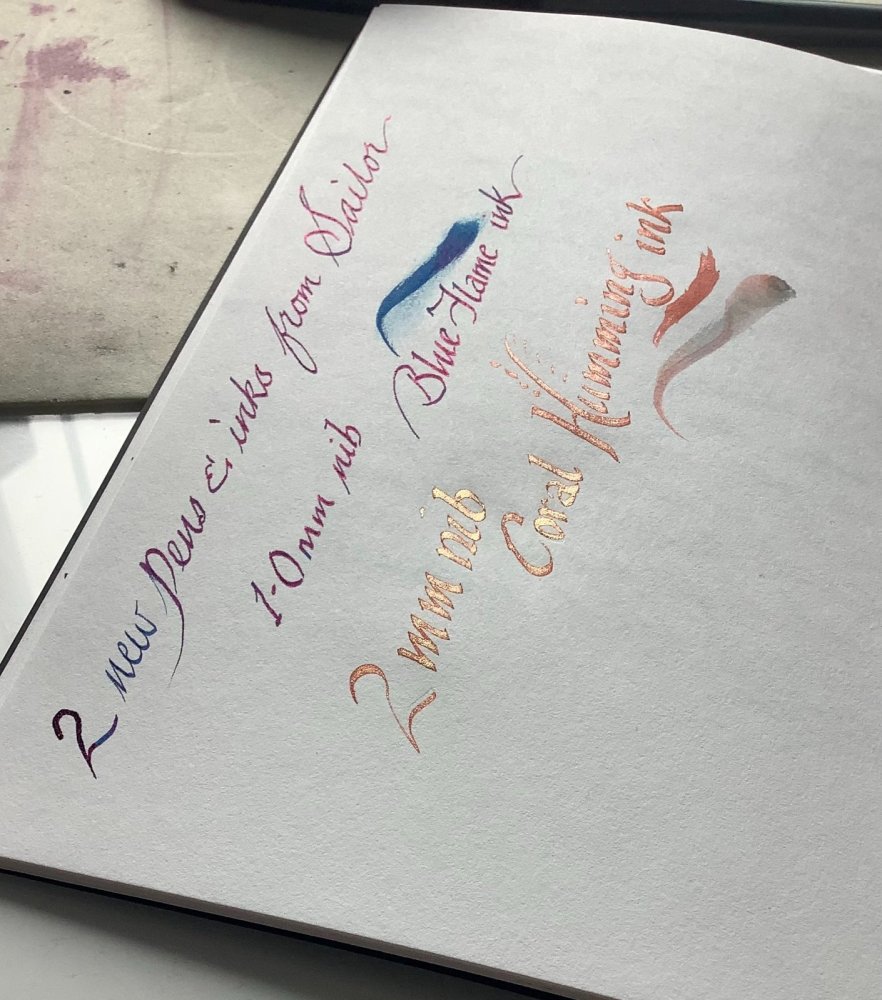 2 new pens & inks from Sailor
1-0mm nib Blue Flame ink
2mm nib
Coral Humming ink